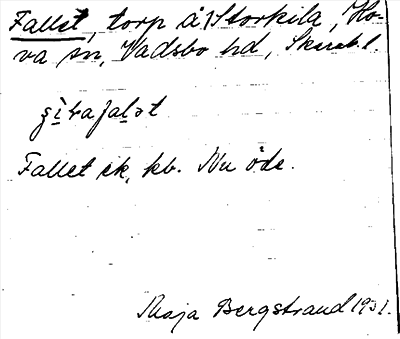 Fallet, torp å Storkila, Ho-
va sn, Vadsbo hd, Skarab.l.
Fallet ek, kb. Nu öde.
Maja Bergstrand 1931.